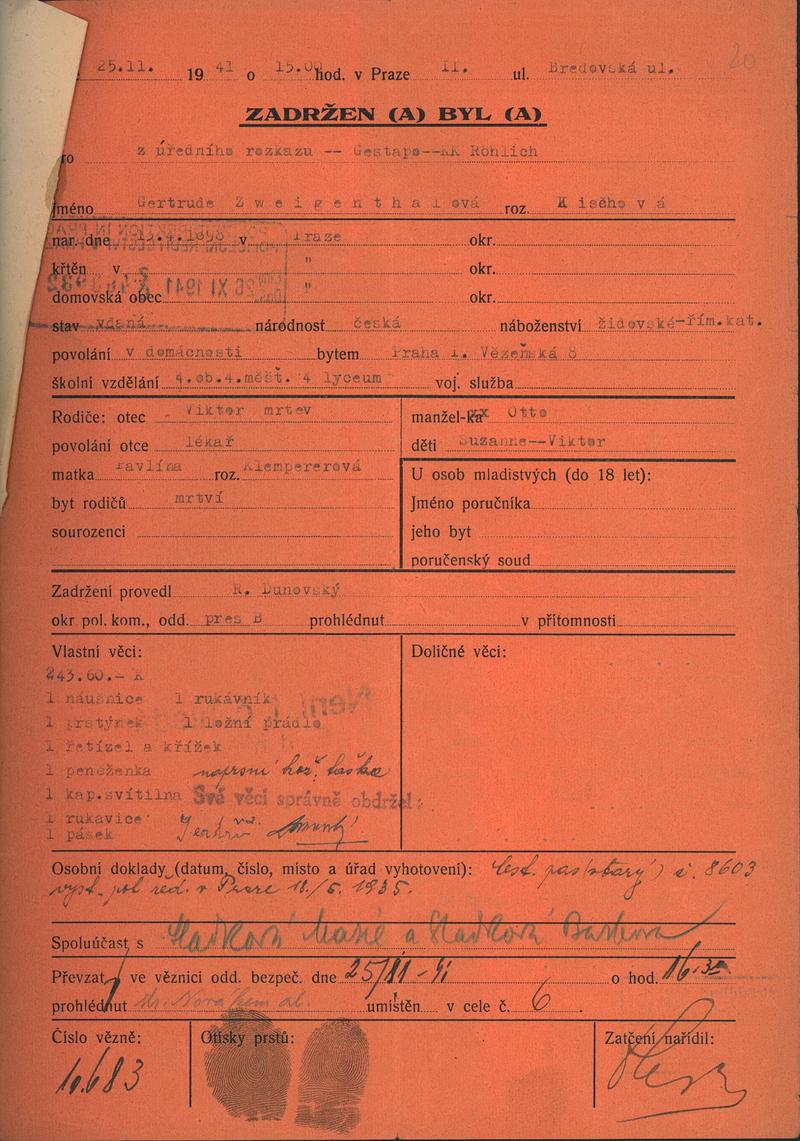 20
25.11. 19 41 o 15.00 hod. v Praze II. ul. Bredovská ul.
ZADRŽEN (A) BYL (A)
z úředního rozkazu -- Gestapo--KK Röhlich
jméno Gertrude Zweigenthalová roz. Kischová
nar. dne v Praze okr.
křtěn v " okr.
domovská obec " okr.
26 XI 1941
stav vdaná národnost česká náboženství židovské-řím.kat.
povolání v domácnosti bytem Praha I. Vězeňská 8
školní vzdělání 4.ob.4.měšť. 4 lyceum voj. služba
Rodiče: otec - Viktor mrtev
povolání otce lékař
matka Pavlína roz. Klempererová
byt rodičů mrtví
sourozenci
manžel-ka Otto
děti Suzanne--Viktor
U osob mladistvých (do 18 let):
Jméno poručníka
jeho byt
poručenský soud
Zadržení provedl R. Dunovský
okr pol. kom., odd. pres B prohlédnut v přítomnosti
Vlastní věci:
243.60.- K
1 náušnice 1 rukávník
1 prstýnek 1 ložní prádlo
1 řetízel a křížek
1 peneženka náprsní kož. taška
1 kap.svítilna Své věci správně obdržel:
1 rukavice
1 pásek
Doličné věci:
Osobní doklady (datum, číslo, místo a úřad vyhotovení): čest. pas (starý) č. 8603
vyst. pol. řed. v Praze 11./6. 1935.
Spoluúčast s Sladková Marie a Sladková Barbora
Převzat ve věznici odd. bezpeč. dne 25/11-41 o hod. 16.30
prohlédnut umístěn v cele č. 6.
Číslo vězně:
10.683
Otisky prstů:
Zatčení nařídil: